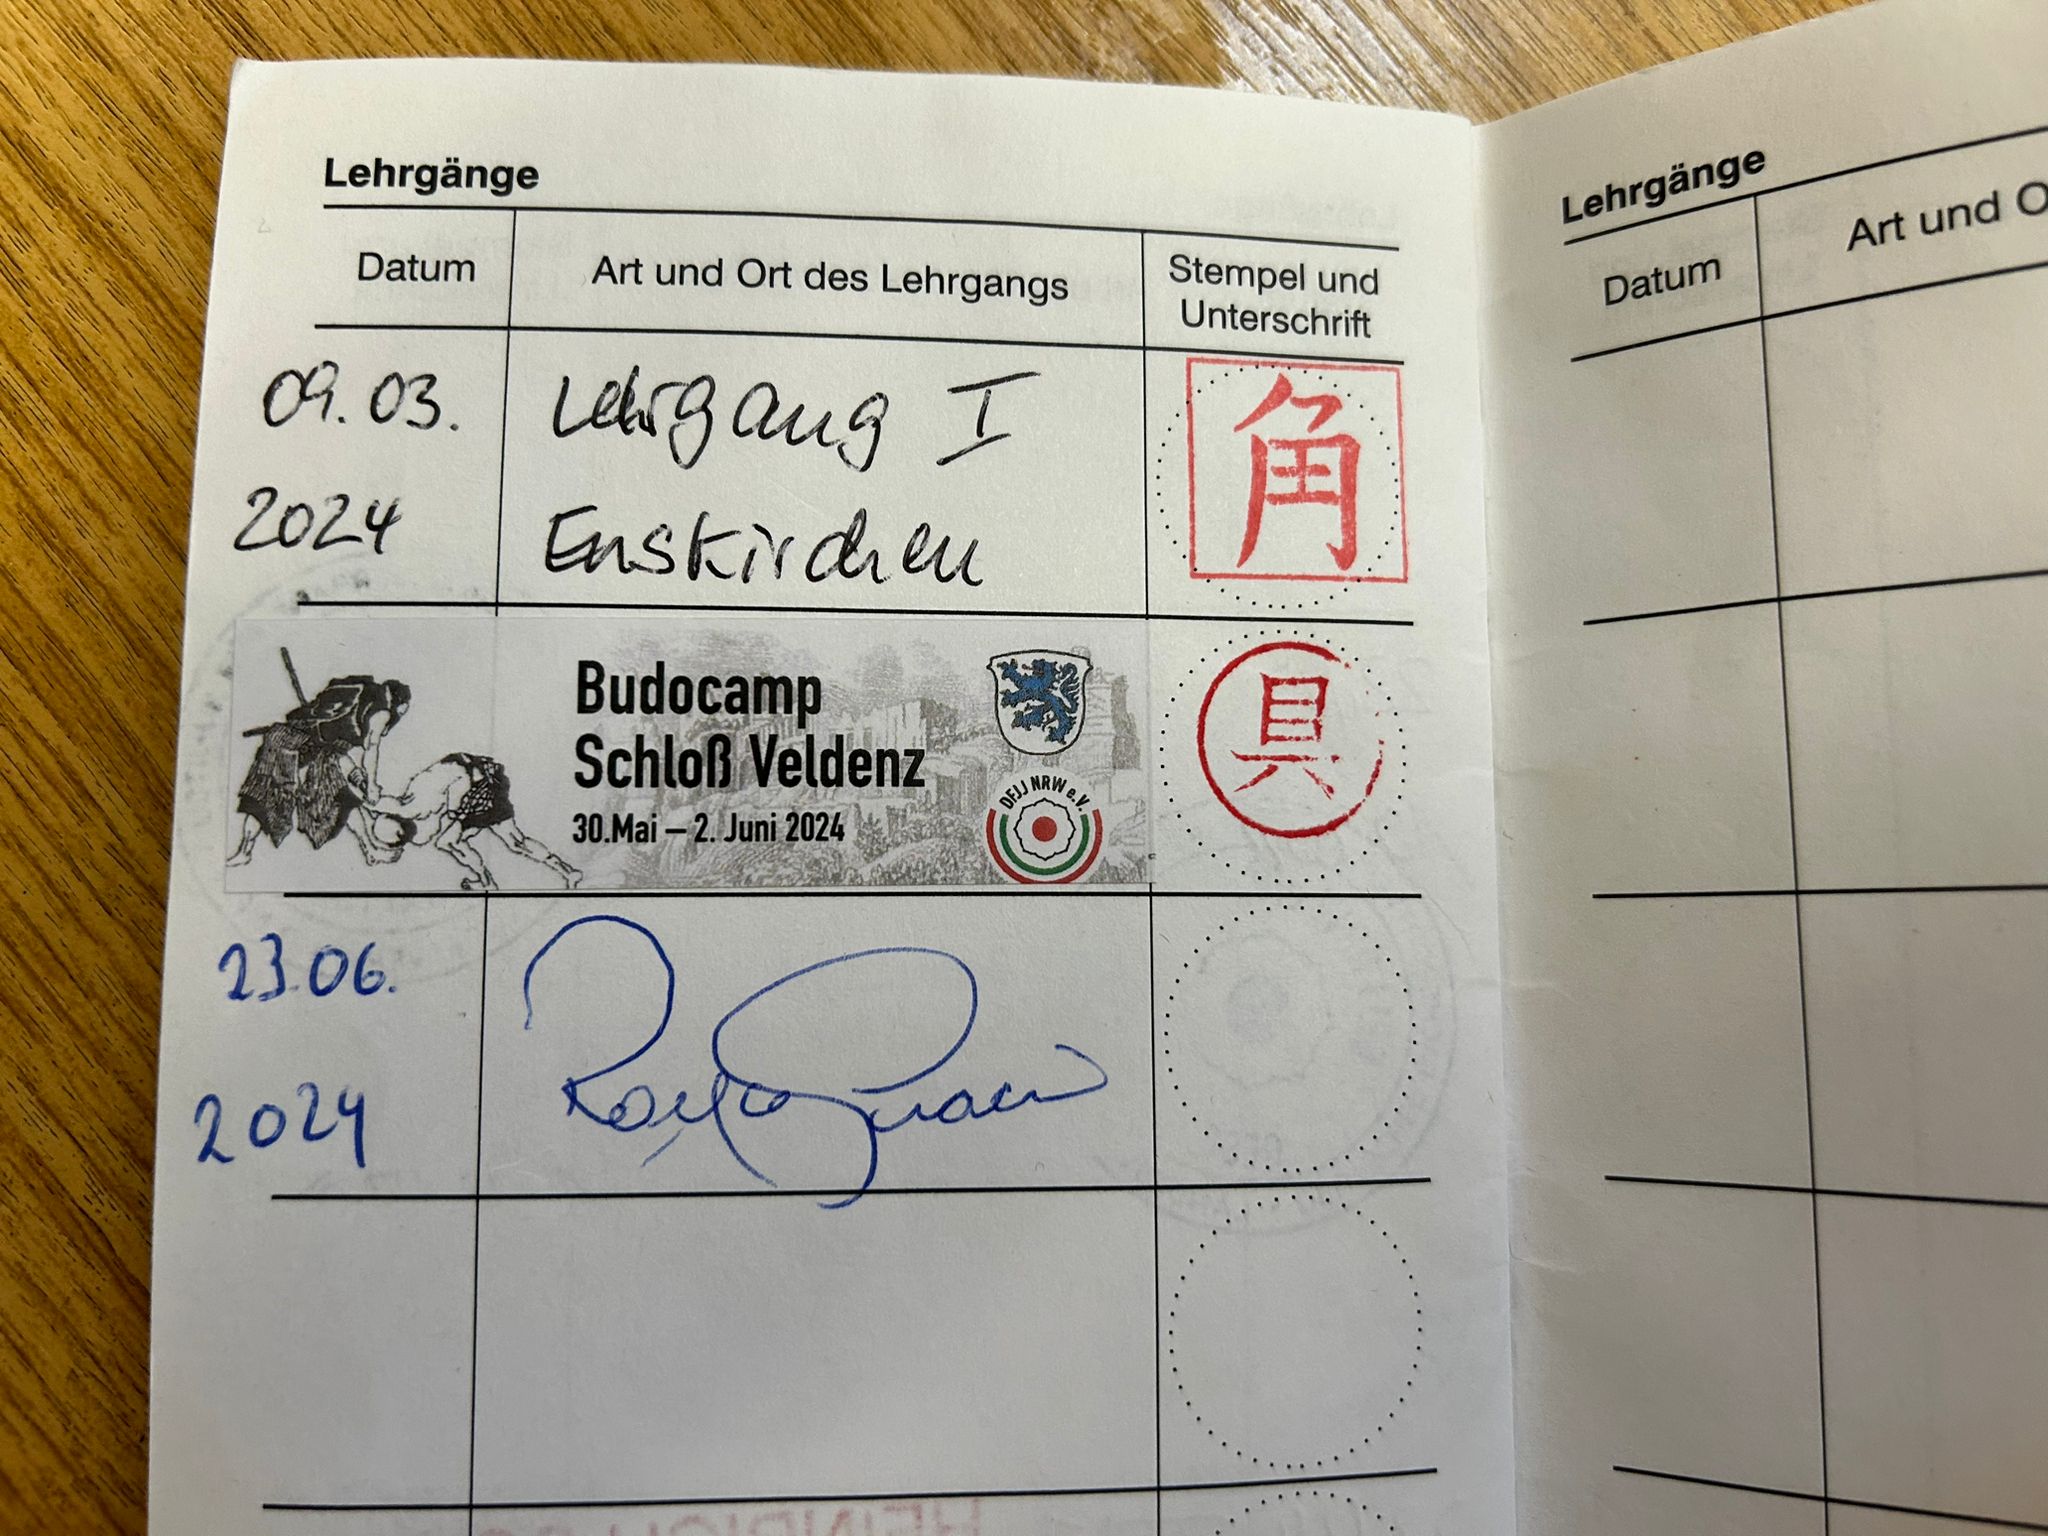 Lehrgänge
Datum
Art und Ort des Lehrgangs
Stempel und
Unterschrift
09.03.
2024
Lehrgang I
Enskirchen
角
Budocamp
Schloß Veldenz
30.Mai – 2. Juni 2024
DFJJ NRW e.V.
具
23.06.
2024
Lehrgänge
Datum
Art und O